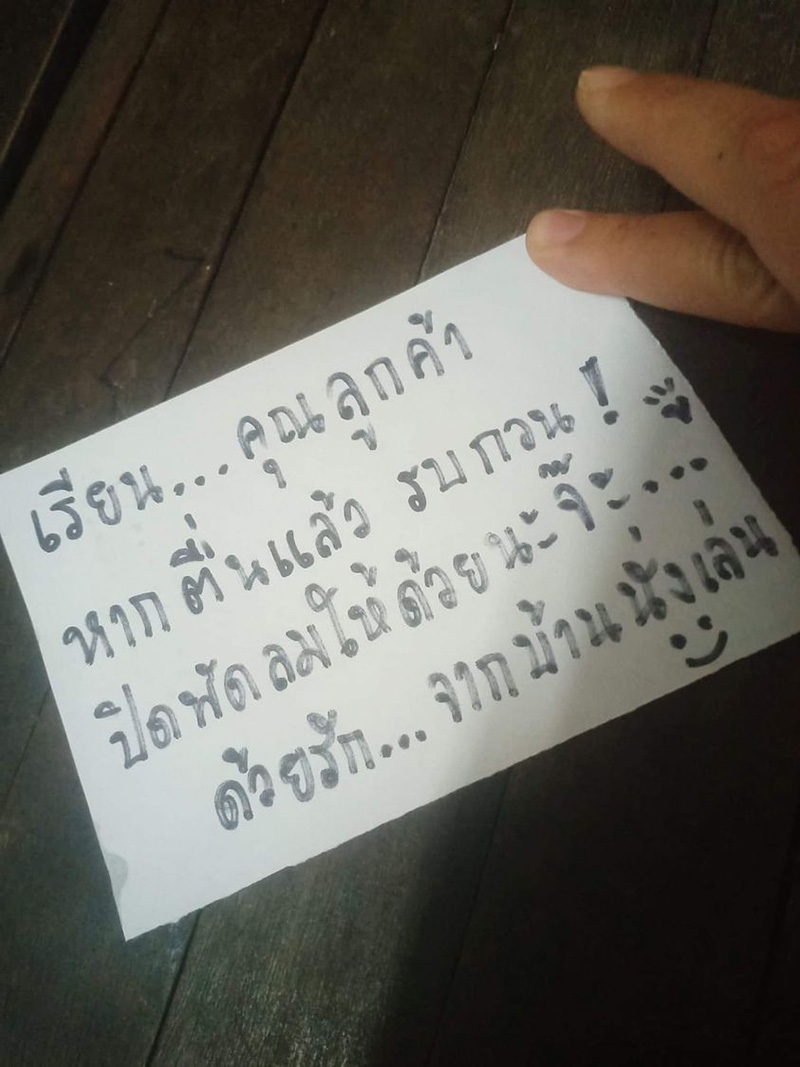 เรียน...คุณลูกค้า
หากตื่นแล้ว รบกวน!
ปิดพัดลมให้ด้วยนะจ๊ะ...
ด้วยรัก...จากบ้านนั่งเล่น